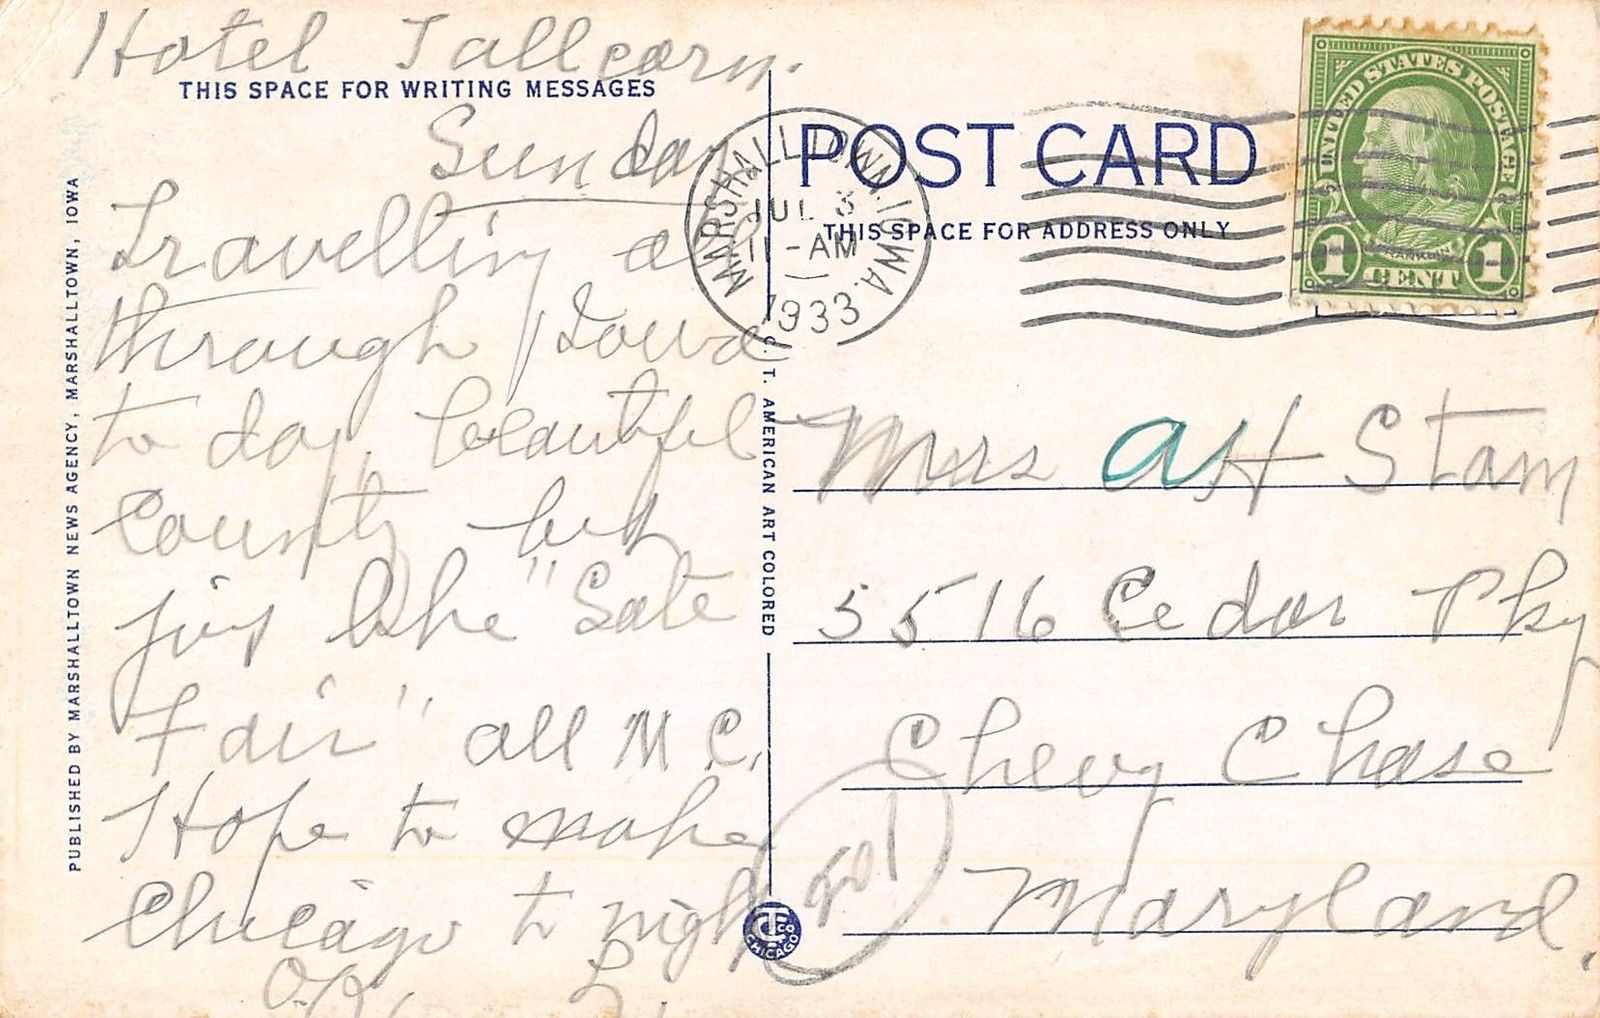 Hotel Tallcorn.
THIS SPACE FOR WRITING MESSAGES
Sunday
Travelling
through Iowa
to day, beautiful
County but
just like "Sate
Fair" all M C.
Hope to make
Chicago to night
O.K. L.
PUBLISHED BY MARSHALLTOWN NEWS AGENCY, MARSHALLTOWN, IOWA
T. AMERICAN ART COLORED
C T CO CHICAGO
MARSHALLTOWN, IOWA.
JUL 3
11-AM
1933
POST CARD
THIS SPACE FOR ADDRESS ONLY
UNITED STATES POSTAGE
FRANKLIN
1 CENT 1
Mrs AH Stam
5516 Cedar Pky
Chevy Chase
Maryland.